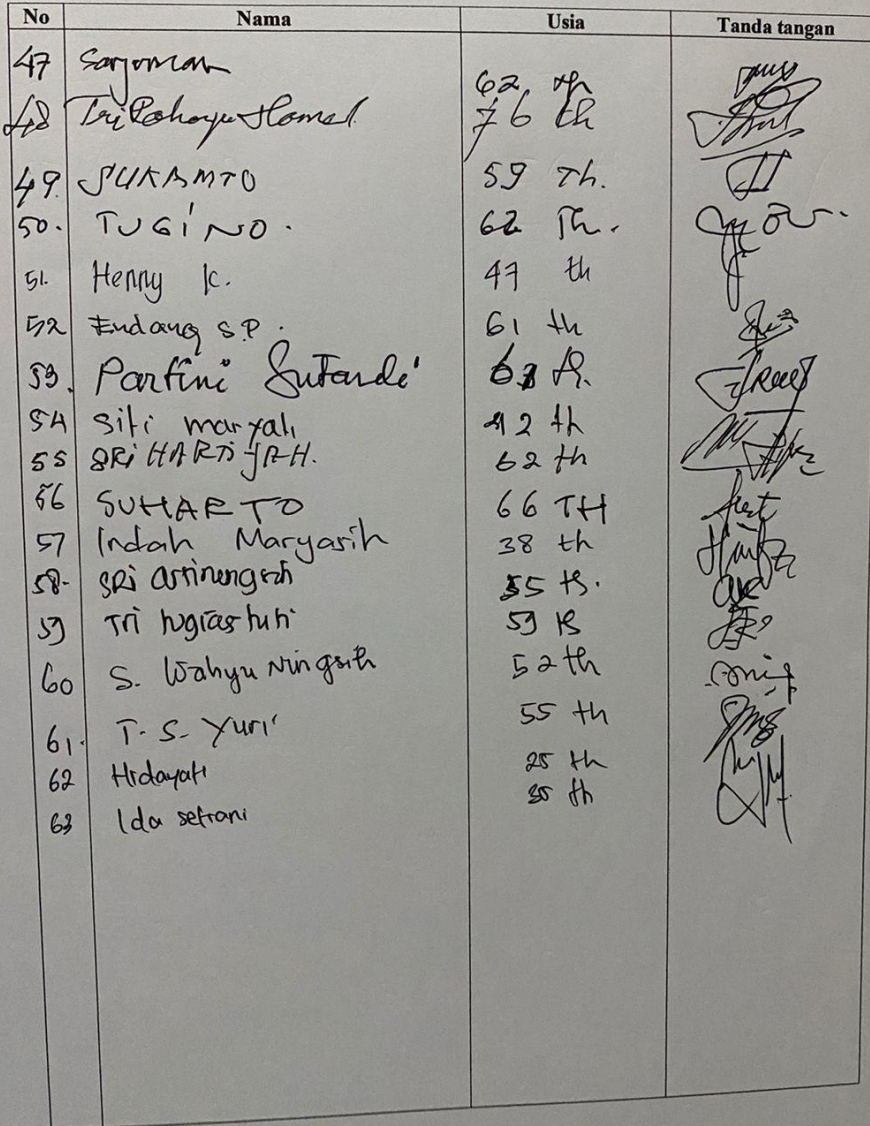 No Nama Usia Tanda tangan
47 62 th
48 Tri Rahayu 76 th
49. SUKAMTO 59 Th.
50. TUGINO. 62 Th.
51. Henny K. 47 th
52 Endang S.P. 61 th
53. Partini Sutardi 6
54 Siti maryah 42 th
55 SRI HARTIJAH. 62 th
56 SUHARTO 66 TH
57 Indah Maryasih 38 th
58. SRi 55 th.
59 Tri 59 th
60 S. Wahyu Ningsih 52 th
61. T. S. Yuri 55 th
62 Hidayati 25 th
63 Ida setrani 35 th